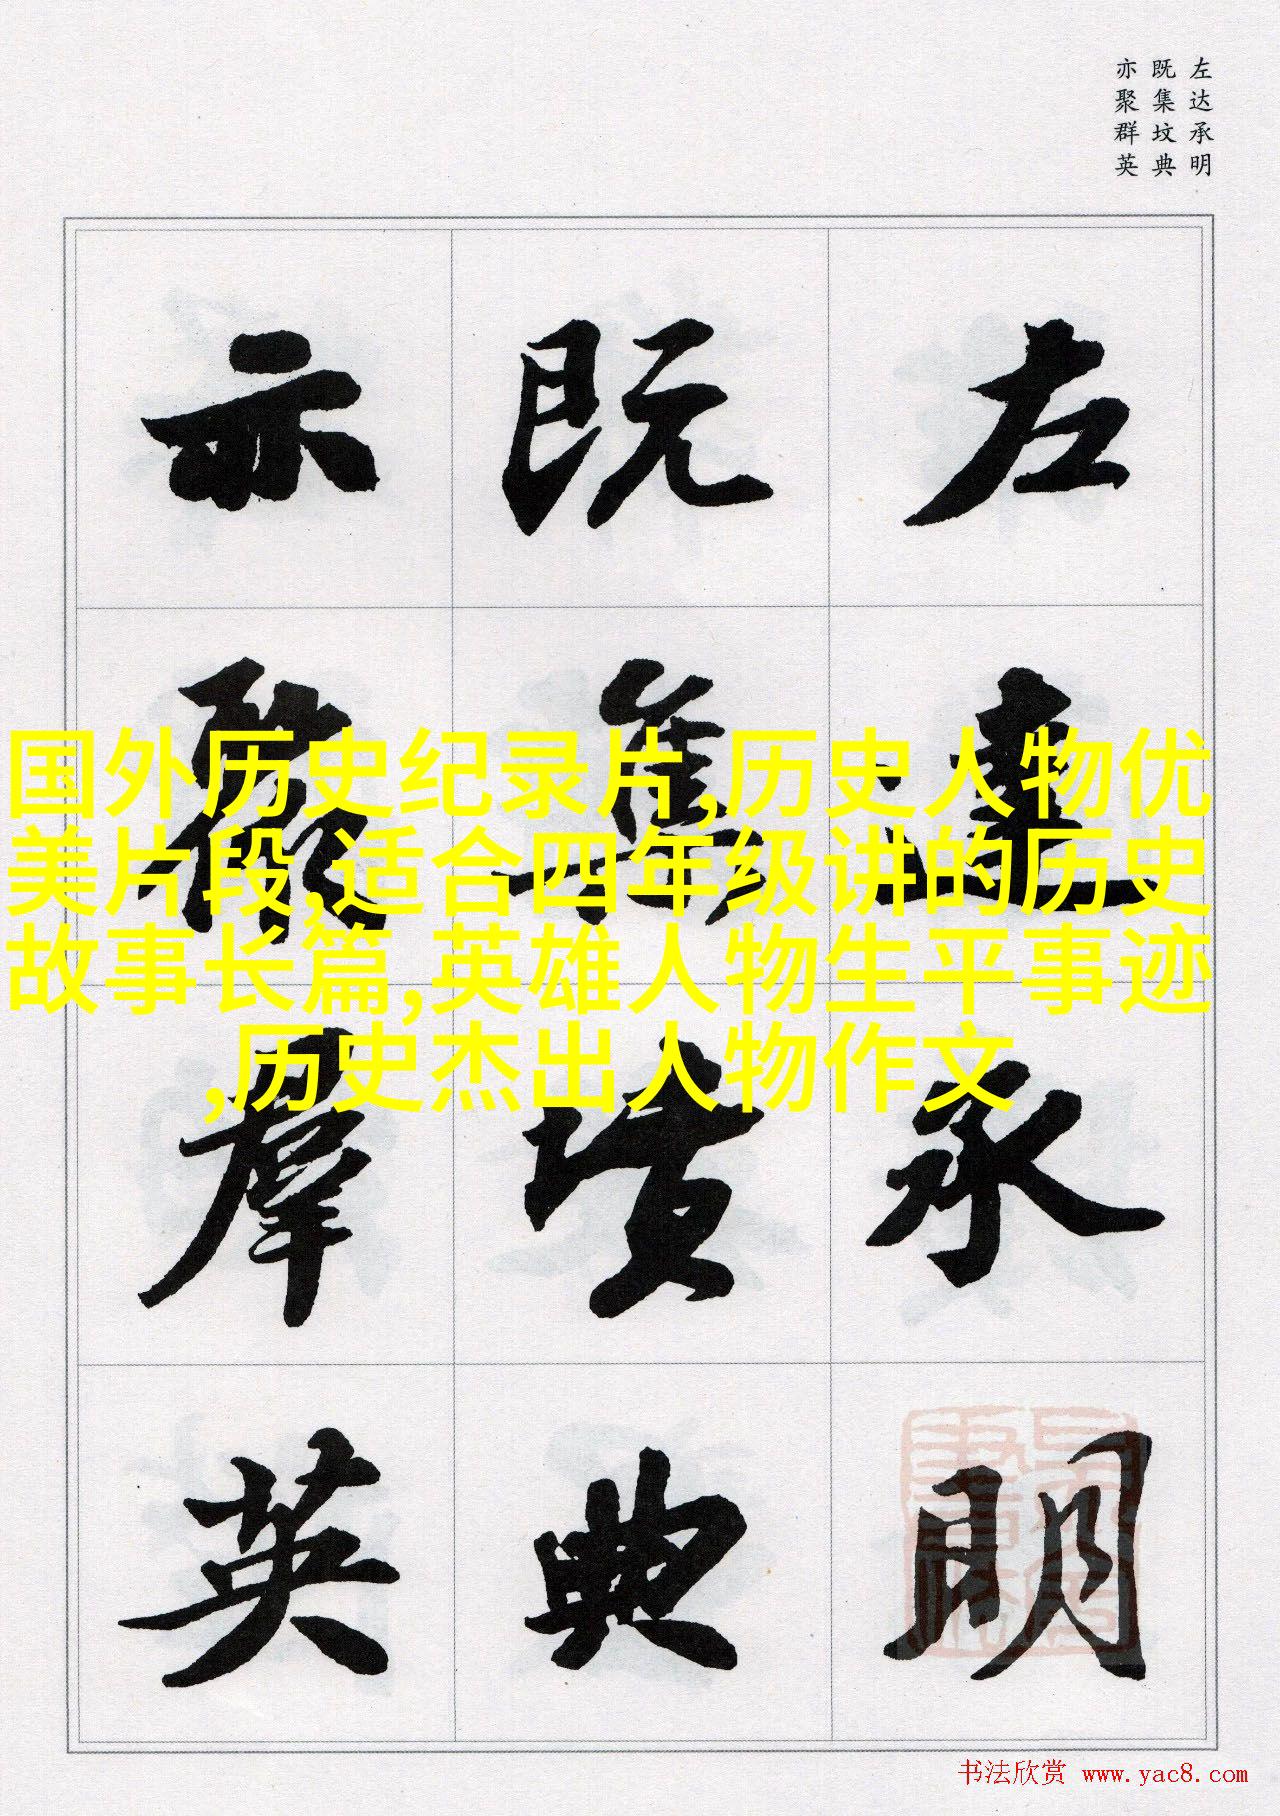 左达承明
既集坟典
亦聚群英
左達承明
既集墳典
亦聚羣英
国外历史纪录片,历史人物优
美片段,适合四年级讲的历史
故事长篇,英雄人物生平事迹
,历史杰出人物作文
书法欣赏 www.yac8.com